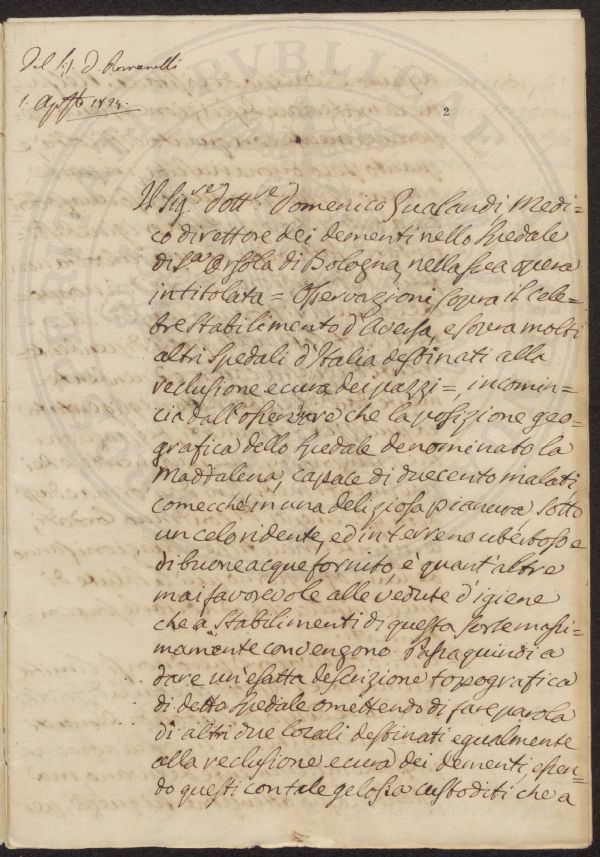 Del Sig. D. Romanelli
1. Agosto 1824.
2
Il Sig.re Dott.re Domenico Gualandi Medi=
co direttore dei dementi nello Spedale
di S.a Orsola di Bologna, nella sua opera
intitolata = Osservazioni sopra il Cele=
bre Stabilimento d'Aversa, e sovra molti
altri Spedali d'Italia destinati alla
reclusione e cura dei pazzi =, incomin=
cia dall'osservare che la posizione geo=
grafica dello Spedale denominato la
Maddalena, capace di duecento malati,
comecchè in una deliziosa pianura sotto
un celo ridente, ed in terreno ubertoso e
di buone acque fornito, è quant'altre
mai favorevole alle vedute d'igiene
che a Stabilimenti di questa sorte massi=
mamente convengono. Passa quindi a
dare un'esatta descrizione topografica
di detto Spedale omettendo di fare parola
di altri due locali destinati egualmente
alla reclusione e cura dei dementi, essen=
do questi con tale gelosia custoditi che a